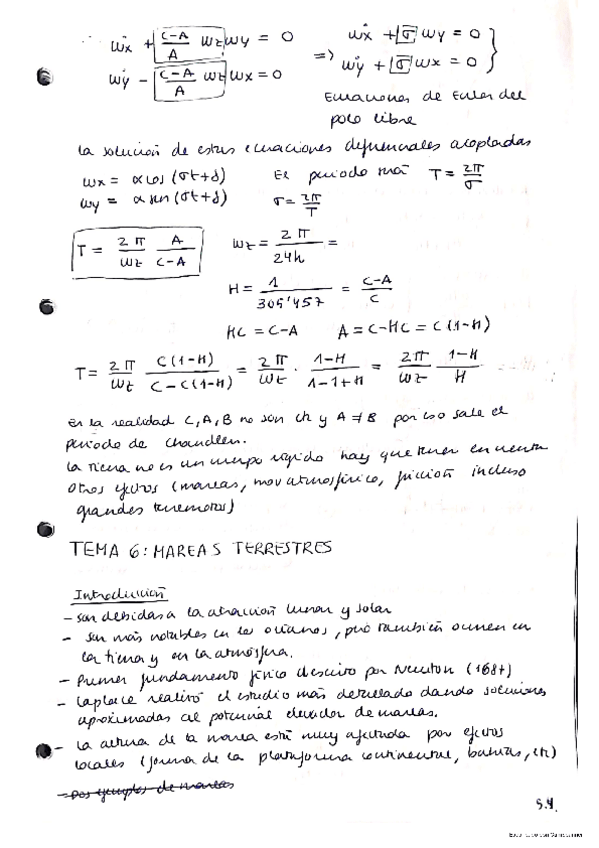 ẇx + C-A/A wz wy = 0
ẇy - C-A/A wz wx = 0
=> ẇx + σ wy = 0
ẇy + σ wx = 0
Ecuaciones de Euler del
polo libre
la solución de estas ecuaciones diferenciales acopladas
wx = α cos (σt+δ) El periodo será T = 2π/σ
wy = α sen (σt+δ) σ = 2π/T
T = 2π/wz A/C-A wz = 2π/24h =
H = 1/305'457 = C-A/C
HC = C-A A = C-HC = C(1-H)
T = 2π/wz C(1-H)/C-C(1-H) = 2π/wz · 1-H/1-1+H = 2π/wz 1-H/H
En la realidad C, A, B no son ctes y A ≠ B por eso sale el
periodo de Chandler.
la tierra no es un cuerpo rígido hay que tener en cuenta
otros efectos (mareas, mov atmosférico, fricción incluso
grandes terremotos)
TEMA 6: MAREAS TERRESTRES
Introducción
- son debidas a la atracción lunar y solar
- son más notables en los océanos, pero también ocurren en
la tierra y en la atmósfera.
- Primer fundamento físico descrito por Newton (1687)
- Laplace realizó el estudio más detallado dando soluciones
aproximadas al potencial elevador de mareas.
- la altura de la marea está muy afectada por efectos
locales (forma de la plataforma continental, bahías, etc)
- Dos ejemplos de mareas
5.4